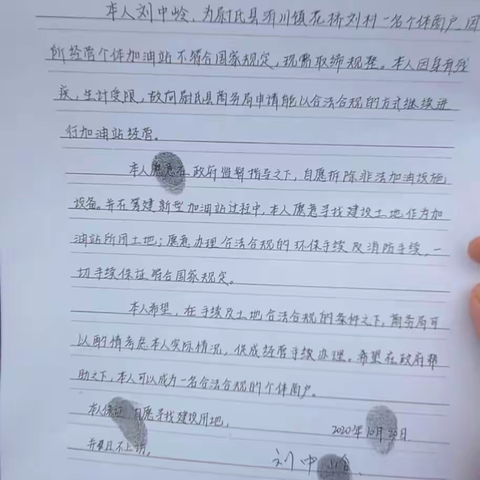 本人刘中岭，为尉氏县洧川镇花桥刘村一名个体商户，因
所经营个体加油站不符合国家规定，现需取缔规整。本人因身有残
疾，生计受限，故向尉氏县商务局申请能以合法合规的方式继续进
行加油站经营。
本人愿意在政府监督指导之下，自愿拆除非法加油设施
设备。并在筹建新型加油站过程中，本人愿意寻找建设土地作为加
油站所用土地；愿意办理合法合规的环保手续及消防手续，一
切手续保证符合国家规定。
本人希望，在手续及土地合法合规的条件之下，商务局可
以酌情考虑本人实际情况，促成经营手续办理。希望在政府帮
助之下，本人可以成为一名合法合规的个体商户。
本人保证，自愿寻找建设用地，
2020年10月30日
并且不上访。
刘中岭